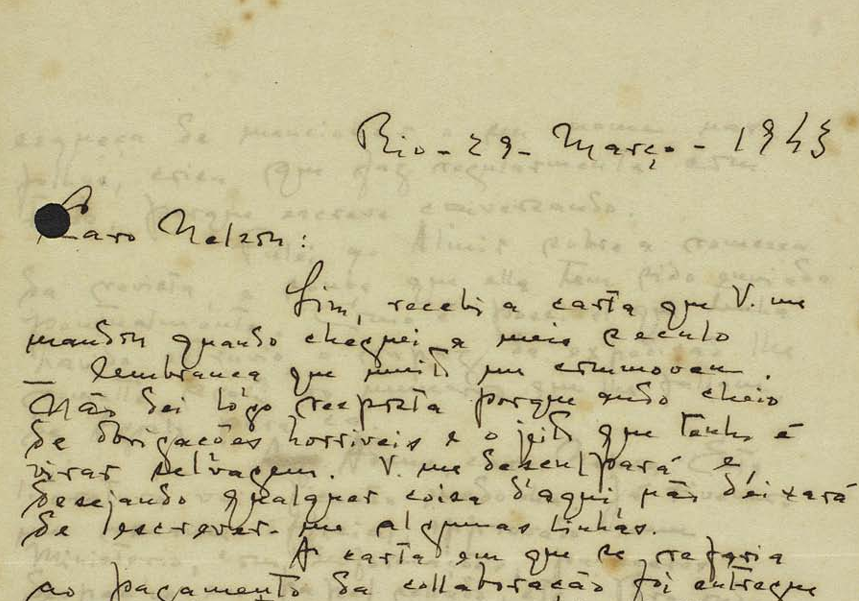 Rio - 29 - Março - 1943
Caro Nelson:
Sim, recebi a carta que V. me
mandou quando cheguei a meio seculo
— lembrança que muito me commoveu.
Não dei lógo resposta porque ando cheio
de obrigações horriveis e o jeito que tenho é
virar selvagem. V. me desculpará e,
desejando qualquer coisa d'aqui não deixará
de escrever-me algumas linhas.
A carta em que se referia
ao pagamento da collaboração foi entregue